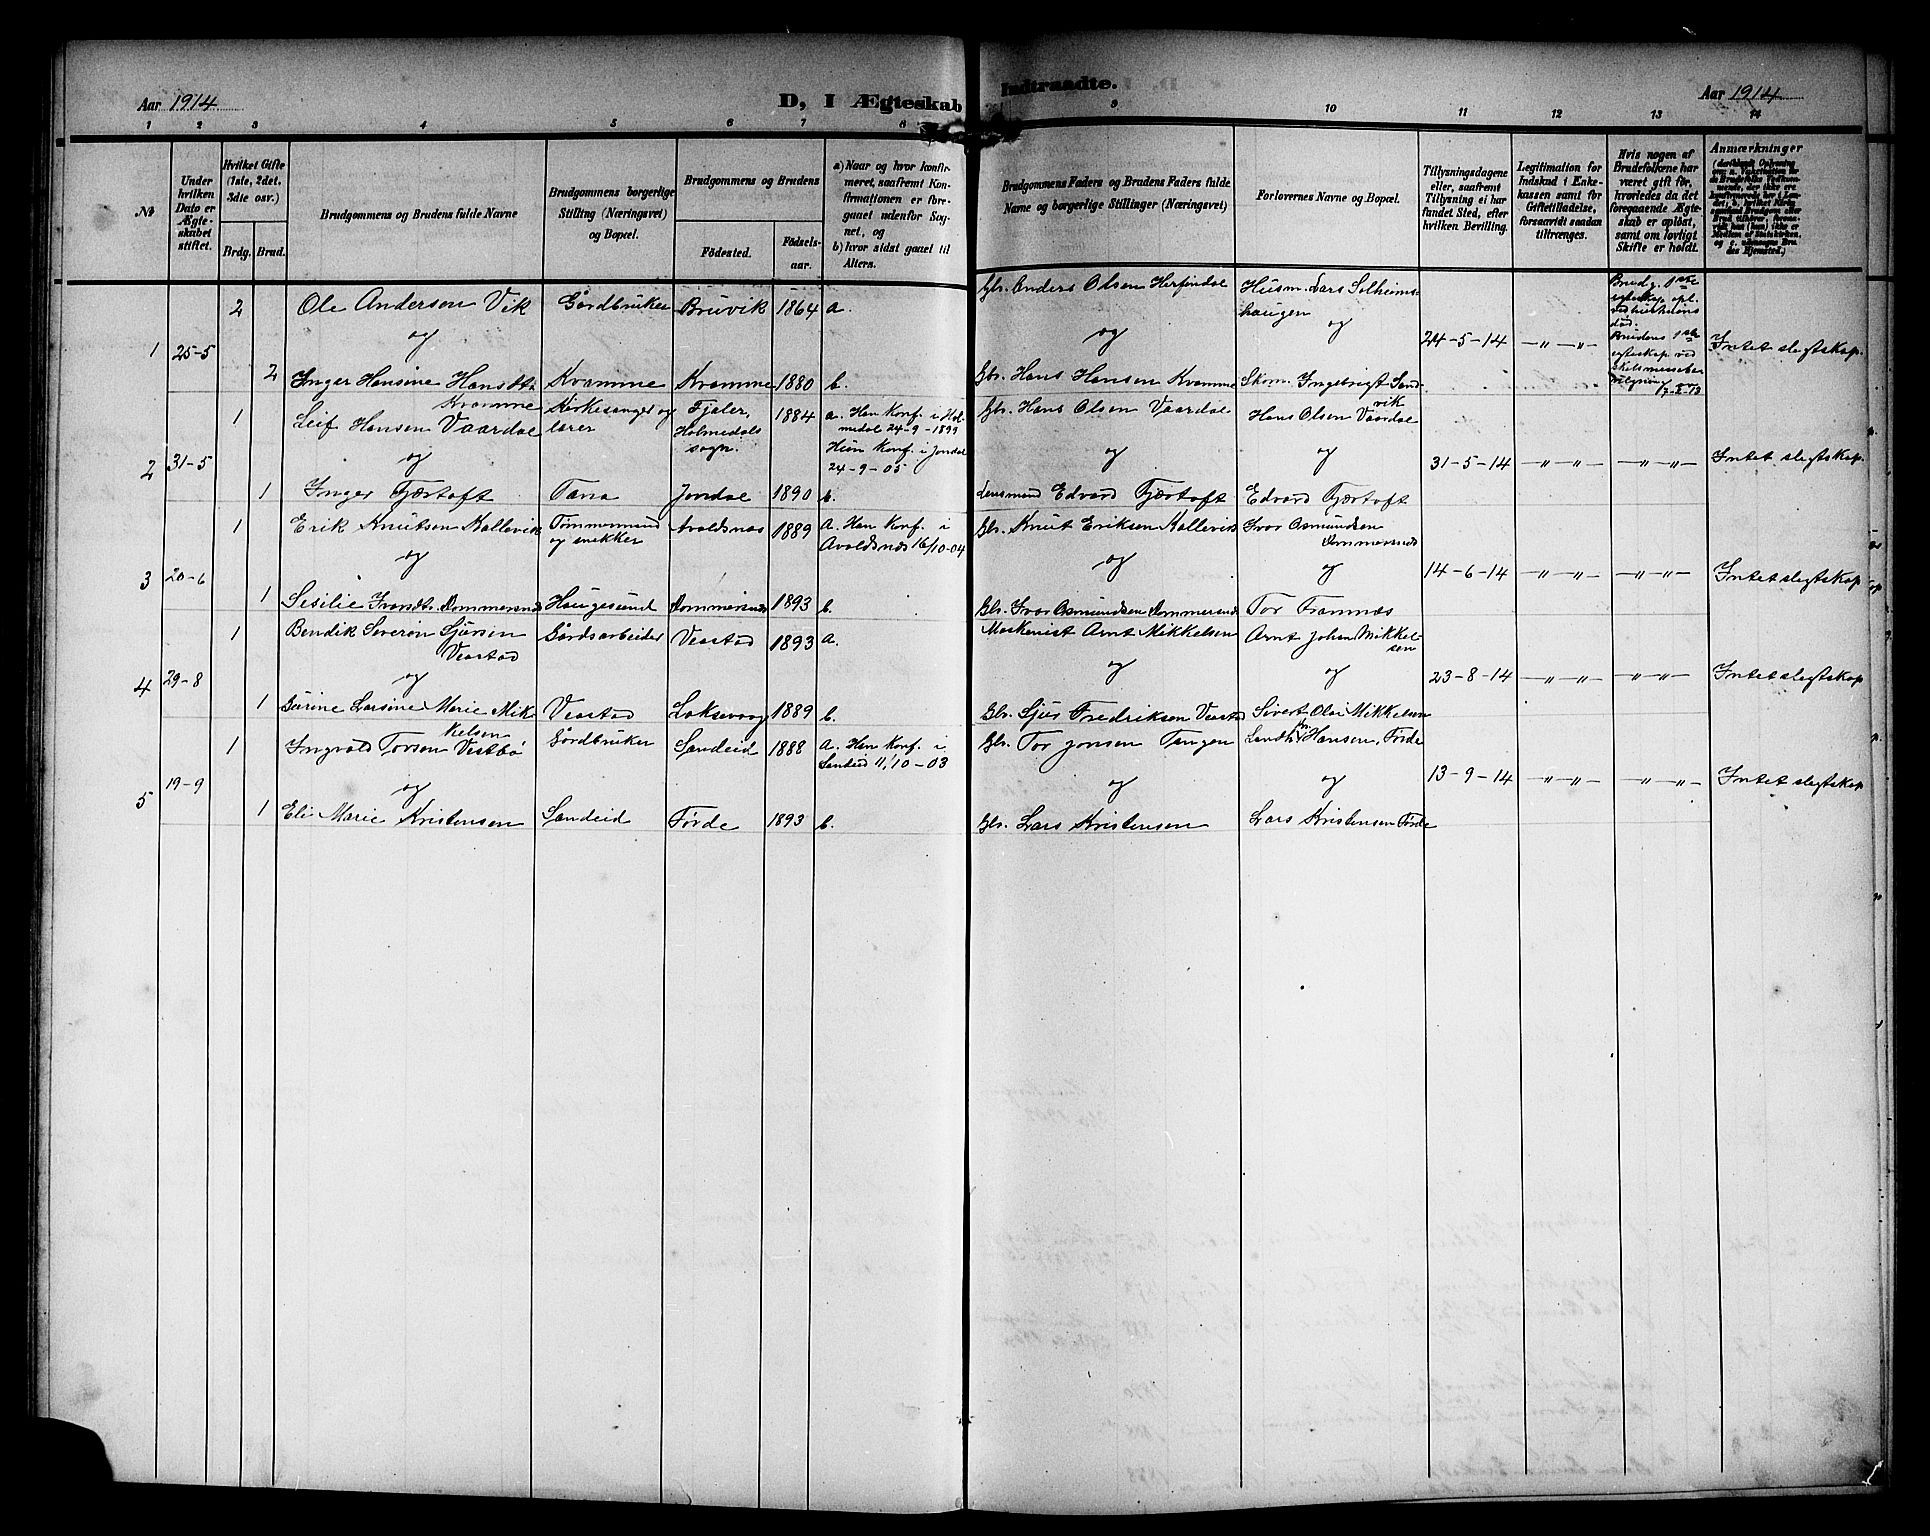 Aar 1914
D, I Ægteskab Indtraadte.
Aar 1914
1 2 3 4 5 6 7 8 9 10 11 12 13 14
No
Under hvilken Dato er Ægteskabet stiftet.
Hvilket Gifte (1ste, 2det, 3die osv.)
Brdg. Brud.
Brudgommens og Brudens fulde Navne
Brudgommens borgerlige Stilling (Næringsvei) og Bopæl.
Brudgommens og Brudens
Födested. Födselsaar.
a) Naar og hvor konfirmeret, saafremt Konfirmationen er foregaaet udenfor Sognet, og
b) hvor sidst gaaet til Alters.
Brudgommens Faders og Brudens Faders fulde Navne og borgerlige Stillinger (Næringsvei)
Forlovernes Navne og Bopæl.
Tillysningsdagene eller, saafremt Tillysning ei har fundet Sted, efter hvilken Bevilling.
Legitimation for Indskud i Enkekassen samt for Giftetilladelse, forsaavidt saadan tiltrænges.
Hvis nogen af Brudefolkene har været gift för, hvorledes da det foregaaende Ægteskab er oplöst, samt om lovligt Skifte er holdt.
Anmærkninger
1 25-5
2 Ole Anderson Vik Gårdbruker Bruvik 1864 a.
og
2 Inger Hansine Hansdt. Kvamme Kvamme Kvamme 1880 b.
Gbr. Anders Olsen Herfindal
og
Gbr. Hans Hansen Kvamme
Husm. Lars Solheimshaugen
og
Skom. Ingebrigt Sandvik
24-5-14 —"—"—
Brudg. 1ste egteskap opl. ved hustruens död.
Brudens 1ste egteskap ved
Intet slegtskap.
2 31-5
1 Leif Hansen Vaardal Kirkesanger og lærer Fjaler, Holmedals sogn. 1884 a. Han konf. i Holmedal 24-9-1899
Hun konf. i Jondal 24-9-05
og
1 Inger Fjærtoft Tana Jondal 1890 b.
Gbr. Hans Olsen Vaardal
og
Lensmand Edvard Fjærtoft
Hans Olsen Vaardal
og
Edvard Fjærtoft
31-5-14 —"—"— —"—"— Intet slegtskap.
3 20-6
1 Erik Knutsen Kallevik Tömmermand og snekker Avaldsnes 1889 a. Han konf. i Avaldsnes 16/10-04
og
1 Sesilie Ivarsdt. Dommersnes Haugesund Dommersnes 1893 b.
Gbr. Knut Eriksen Kallevik
og
Gbr. Ivar Osmundsen Dommersnes
Ivar Osmundsen Dommersnes
og
Tor Framnes
14-6-14 —"—"— —"—"— Intet slegtskap
4 29-8
1 Bendik Severin Sjursen Veastad Gårdsarbeider Veastad 1893 a.
og
1 Larsine Marie Mikkelsen Veastad Laksevaag 1889 b.
Maskinist Arnt Mikkelsen
og
Gbr. Sjur Fredriksen Veastad
Arnt Johan Mikkelsen
og
Sivert Olai Mikkelsen
23-8-14 —"—"— —"—"— Intet slegtskap
5 19-9
1 Ingvald Torsen Vestbö Gårdbruker Sandeid 1888 a. Han konf. i Sandeid 11/10-03
og
1 Eli Marie Kristensen Sandeid Förde 1893 b.
Gbr. Tor Jonsen Tangen
og
Gbr. Lars Kristensen
Landh. Hansen, Förde
og
Lars Kristensen Förde
13-9-14 —"—"— —"—"— Intet slegtskap